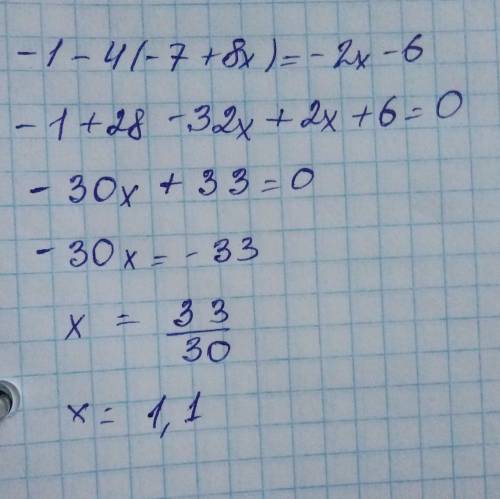 -1-4(-7+8x)=-2x-6
-1+28-32x+2x+6=0
-30x+33=0
-30x=-33
x = 33/30
x = 1,1